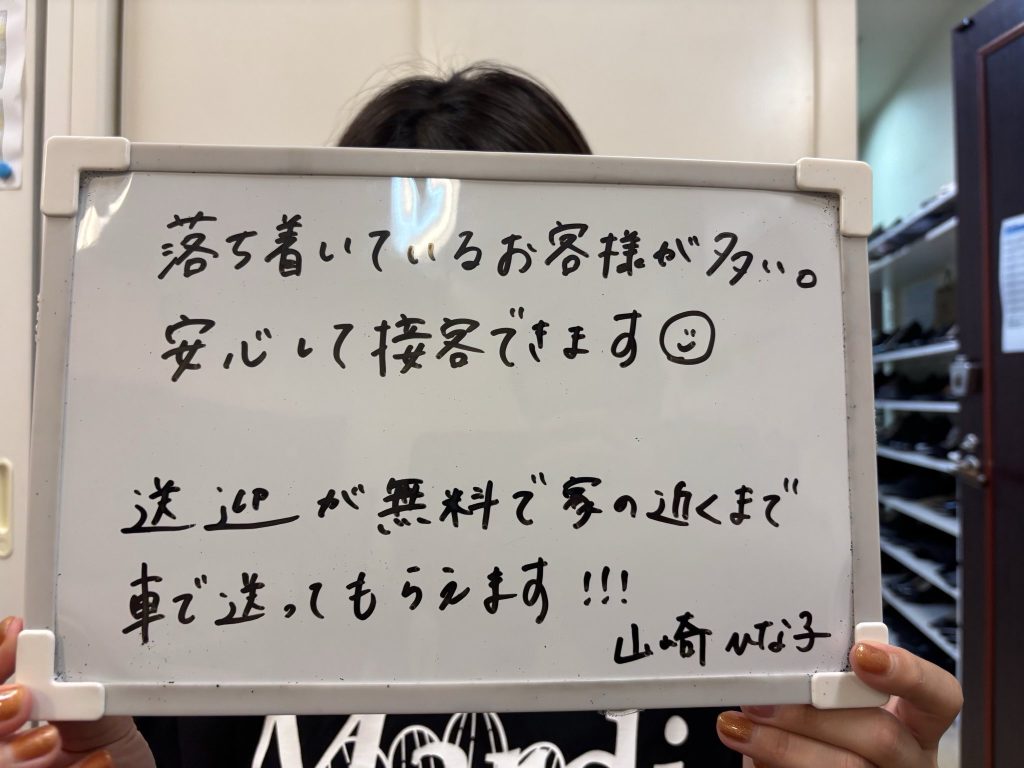 落ち着いているお客様が多い。
安心して接客できます
送迎が無料で家の近くまで
車で送ってもらえます!!!
山崎 ひな子
Mardi